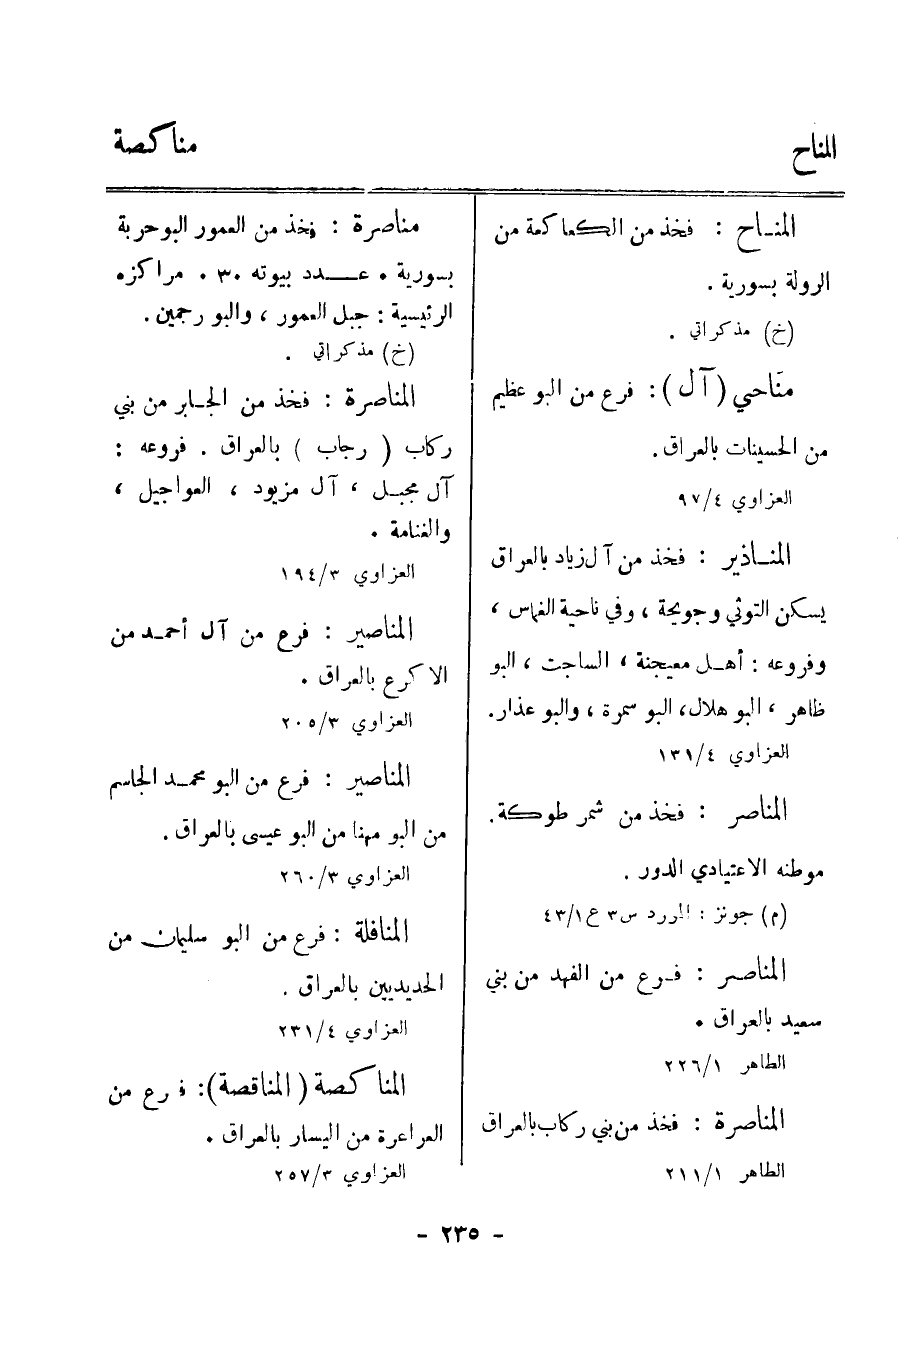 المناح
مناكصة
المناح : فخذ من الكعاكعة من
الرولة بسورية .
(خ) مذكراتي .
منَاحي (آل) : فرع من البو عظيم
من الحسينات بالعراق .
العزاوي ٩٧/٤
المناذير : فخذ من آل زياد بالعراق
يسكن التوثي وجويجة ، وفي ناحية الغماس ،
وفروعه : أهل معيجنة ، الساجت ، البو
ظاهر ، البو هلال، البو سمرة ، والبو عذار.
العزاوي ١٣١/٤
المناصر : فخذ من شمر طوكة.
موطنه الاعتيادي الدور .
(م) جونز : المورد س٣ ع٤٣/١
المناصر : فرع من الفهد من بني
سعيد بالعراق .
الطاهر ٢٢٦/١
المناصرة : فخذ من بني ركاب بالعراق
الطاهر ٢١١/١
مناصرة : فخذ من العمور البوحربة
بسورية . عدد بيوته ٣٠ . مراكزه
الرئيسية : جبل العمور ، والبو رجمين .
(خ) مذكراتي .
المناصرة : فخذ من الجابر من بني
ركاب ( رجاب ) بالعراق . فروعه :
آل مجبل ، آل مزيود ، العواجيل ،
والغنامة .
العزاوي ١٩٤/٣
المناصير : فرع من آل أحمد من
الاكرع بالعراق .
العزاوي ٢٠٥/٣
المناصير : فرع من البو محمد الجاسم
من البو مهنا من البو عيسى بالعراق .
العزاوي ٢٦٠/٣
المنافلة : فرع من البو سليمان من
الحديديين بالعراق .
العزاوي ٢٣١/٤
المناكصة ( المناقصة ) : فرع من
العراعرة من اليسار بالعراق .
العزاوي ٢٥٧/٣
- ٢٣٥ -